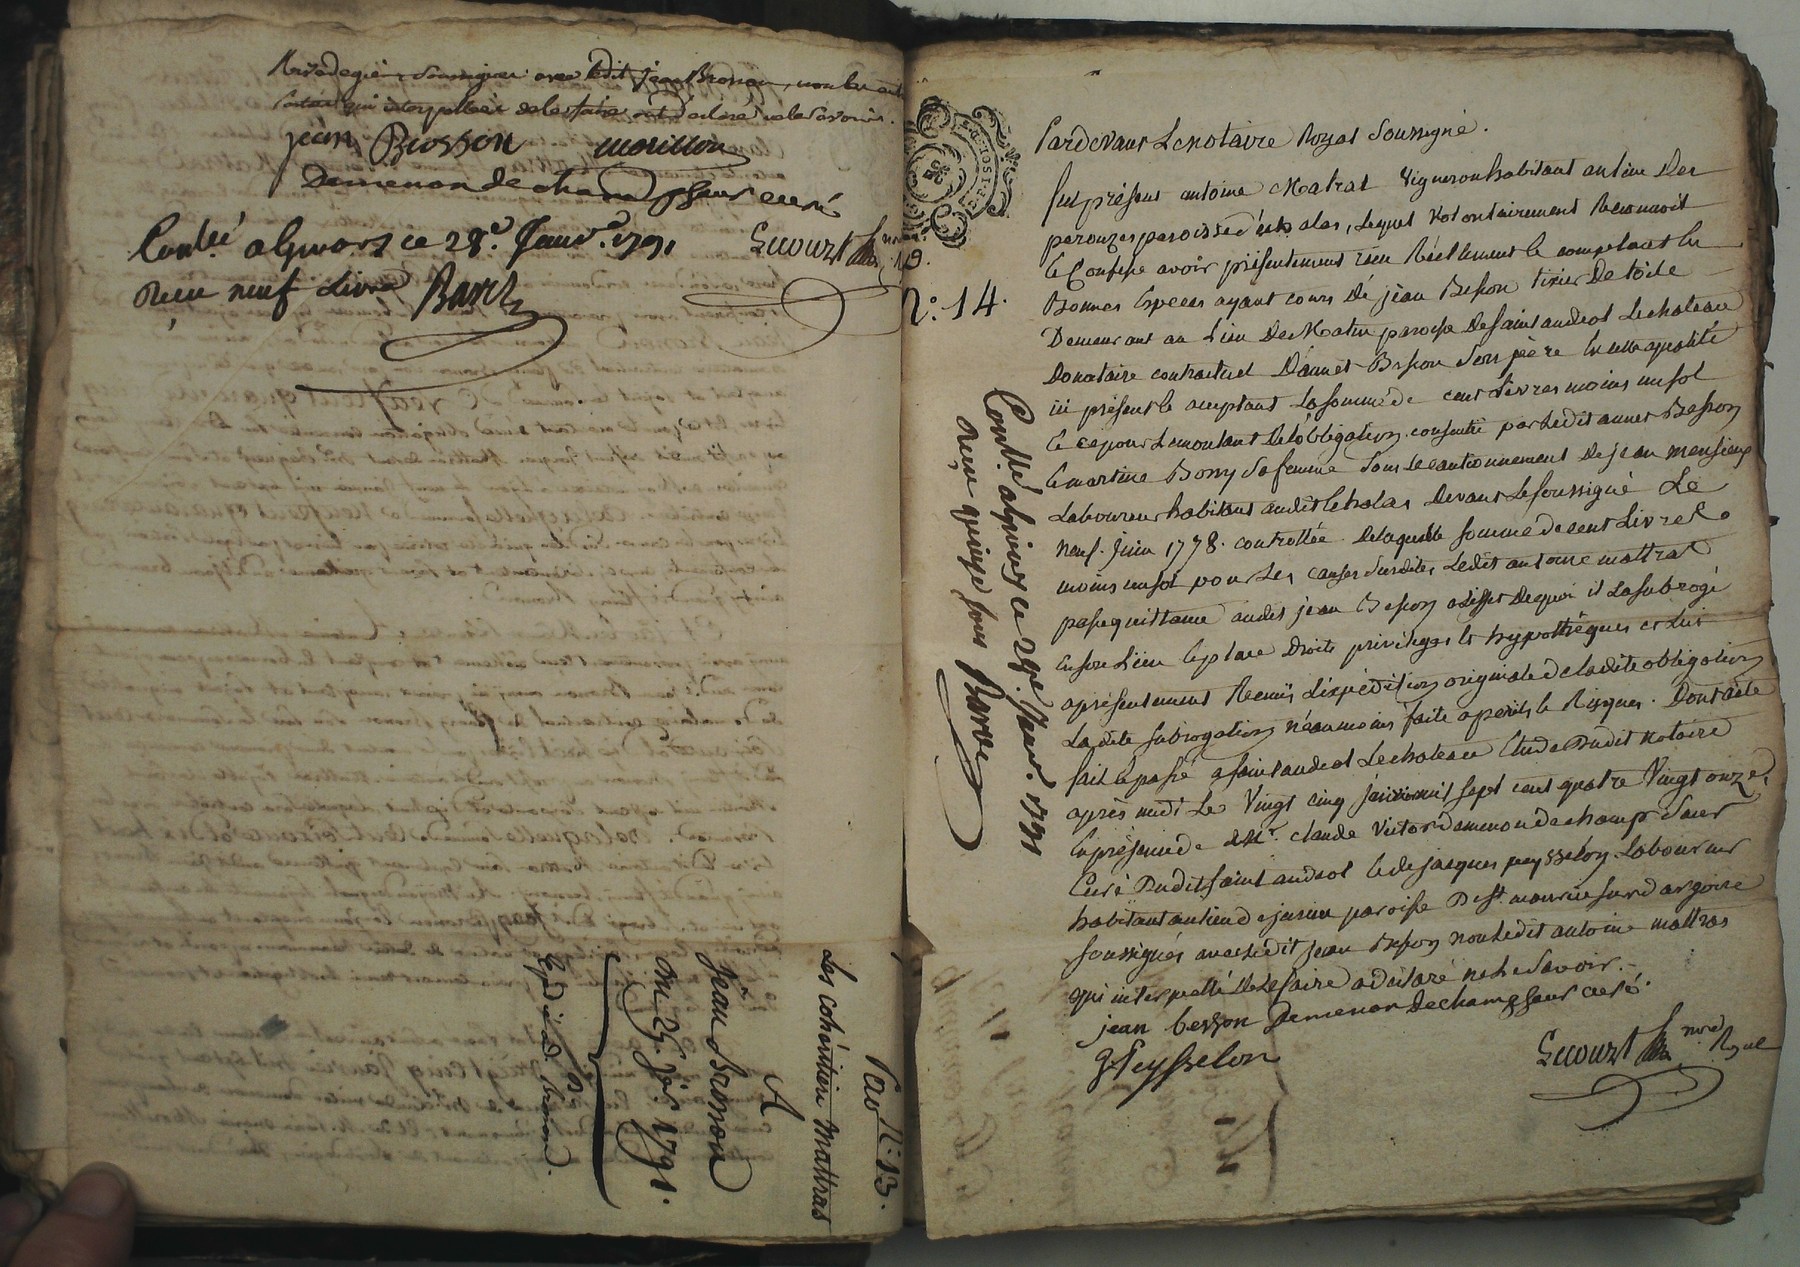 Rivedegier soussignés avec ledit jean Brosson, non les autres
parties qui interpellées de le faire ont déclaré ne le savoir.
jean Brosson morillon
Demenon de champ saur curé
Conlé a Givors ce 28e Janv. 1791
Reçu neuf Livres Barve
N°. 14.
Conllé a givors ce 28e. Janv. 1791
Reçu quinze sous Barve
Pardevant Le notaire Royal soussigné.
fut présent antoine Matrat Vigneron habitant au lieu Des
perouzes paroisse d'echalas, lequel volontairement Reconnoit
le Confesse avoir présentement reçu Réellement le comptant en
Bonnes Especes ayant cours De jean Besson tixier De toile
Demeurant au Lieu De Matin paroisse De saint andeol Le chateau
Donataire contractuel D'annet Besson son père En cette qualité
ici présent le acceptant La somme de cent Livres moins un sol
le ce pour Le montant De l'obligation consentie par Ledit annet Besson
le martine Bony sa femme sous Le cautionnement De jean mensieux
Laboureur habitant audit Echalas Devant Le soussigné Le
neuf. juin 1778. controllée. De laquelle somme de cent Livres
moins un sol pour Les causes susdites Ledit antoine mattrat
passe quittance audit jean Besson a l'effet De quoi il La subrogé
En son Lieu le place Droits privileges le hypothèques et Lui
a présentement Remis L'expédition originale de la dite obligation
La dite subrogation néanmoins faite a perils le Risques. Dont acte
fait le passé a saint andeol Le chateau Etude Dudit Notaire
après midi Le Vingt cinq janvier mil sept cent quatre Vingt onze,
En présence de Mr. claude Victor Demenon de champ saur
Curé Dudit saint andeol le de jacques peysselon Laboureur
habitant au lieu de jurieu paroisse De st. maurice sur dargoire
soussignés avec Ledit jean Besson non Ledit antoine mattras
qui interpellé De le faire a déclaré ne Le savoir.
jean besson Demenon De champ saur curé.
J Peysselon
nre Royal
Pao N: 13.
Les cohéritiers Mattras
A
Jean Brosson
Du 25. jer. 1791.
Expédié à d. brosson.